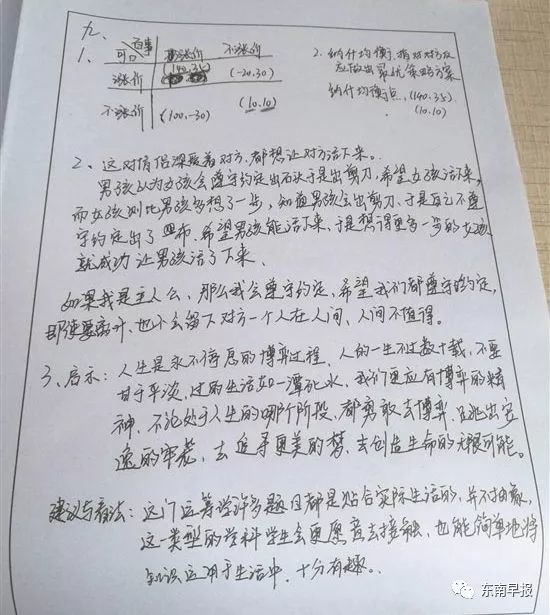 九、
1、
可口 百事 涨价 不涨价
涨价 (140.35) (-20.30)
不涨价 (100.-30) (10.10)
2. 纳什均衡.指对对方反
应做出最优策略方案
纳什均衡点.(140.35)
.(10.10)
2、这对情侣深爱着对方.都想让对方活下来。
男孩认为女孩会遵守约定出石头于是出剪刀.希望女孩活下来,
而女孩则比男孩多想了一步,知道男孩会出剪刀.于是自己不遵
守约定出了布.希望男孩能活下来.于是想得更多一步的女孩
就成功让男孩活了下来、
如果我是主人公、那么我会遵守约定.希望我们都遵守约定,
即使要离开.也不会留下对方一个人在人间、人间不值得。
3、启示:人生是永不停息的博弈过程.人的一生不过数十载,不要
甘于平淡,过的生活如一潭死水,我们更应有博弈的精
神.不论处于人生的哪个阶段,都勇敢去博弈.且逃出安
逸的牢笼、去追寻更美的梦.去创造生命的无限可能。
建议与看法:这门运筹学许多题目都是贴合实际生活的,并不枯燥,
这一类型的学科学生会更愿意去接触,也能简单地将
知识运用于生活中.十分有趣。
东南早报